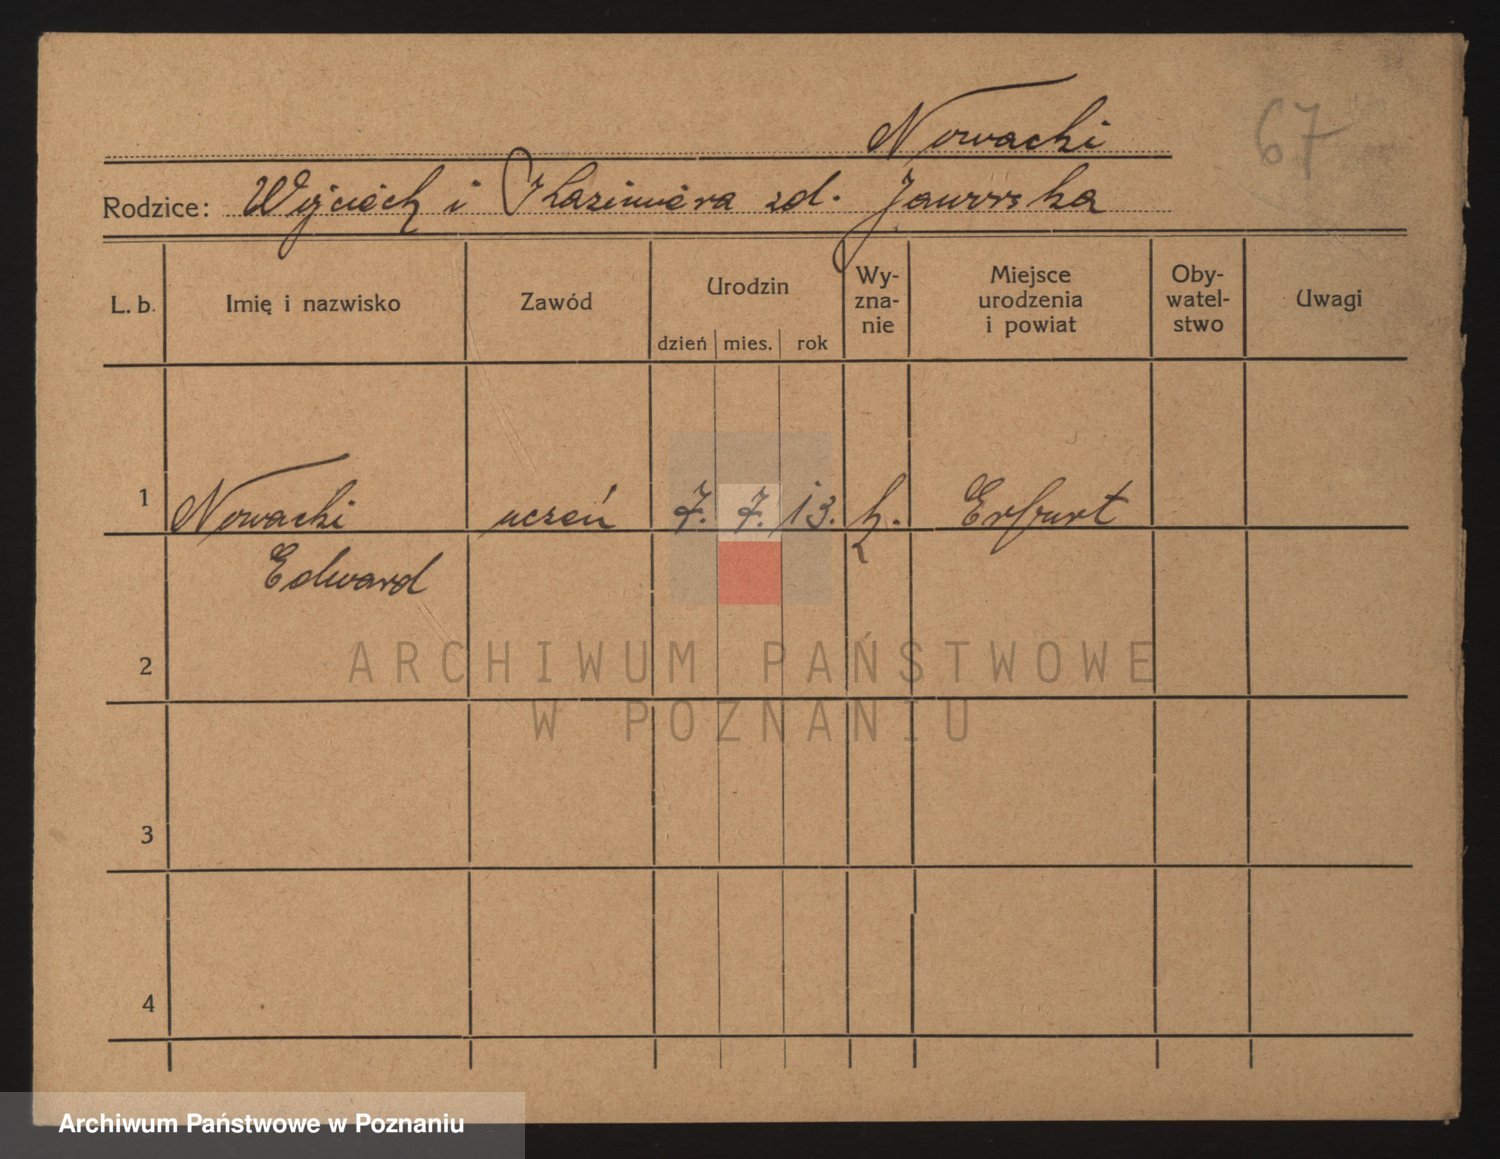 Nowacki
67
Rodzice: Wojciech i Kazimiera zd. Jaworska
L. b. Imię i nazwisko Zawód Urodzin dzień mies. rok Wy-zna-nie Miejsce urodzenia i powiat Oby-watel-stwo Uwagi
1 Nowacki uczeń 7. 7. 13. k. Erfurt
Edward
2
ARCHIWUM PAŃSTWOWE
W POZNANIU
3
4
Archiwum Państwowe w Poznaniu